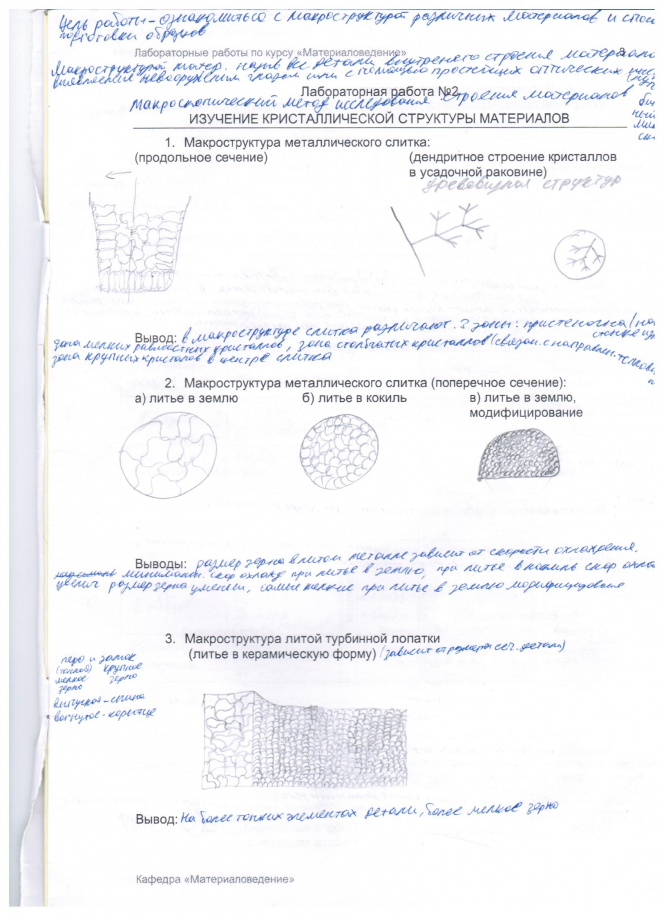 Цель работы - ознакомиться с макроструктурой различных материалов и
подготовки образцов
Лабораторные работы по курсу «Материаловедение»
Макроструктурой матер. назыв все детали внутренего строения
выявленые невооружённым глазом или с помощью простейших оптических
Лабораторная работа №2
Макроскопический метод исследования строения материалов
ИЗУЧЕНИЕ КРИСТАЛЛИЧЕСКОЙ СТРУКТУРЫ МАТЕРИАЛОВ
1. Макроструктура металлического слитка:
(продольное сечение)
(дендритное строение кристаллов
в усадочной раковине)
древовидная структур
Вывод: в макроструктуре слитка различают 3 зоны: пристеночна
зона мелких равноостных кристаллов, зона столбчатых кристаллов (связан. с направлен.
зона крупных кристалов в центре слитка
2. Макроструктура металлического слитка (поперечное сечение):
а) литье в землю
б) литье в кокиль
в) литье в землю,
модифицирование
Выводы: размер зерна в литом металле зависит от скорости охлаждения.
минимальн. скор охлажд при литье в землю, при литье в кокиль скор
увелич размер зерна уменьш, самые мелкие при литье в землю
3. Макроструктура литой турбинной лопатки
(литье в керамическую форму) (зависит от размера сеч. детали)
перо и замок
(тонкое) крупное
мелкое зерно
зерно
выпуклая - спинка
вогнутое - корытце
Вывод: На более тонких элементах детали, более мелкое зерно
Кафедра «Материаловедение»